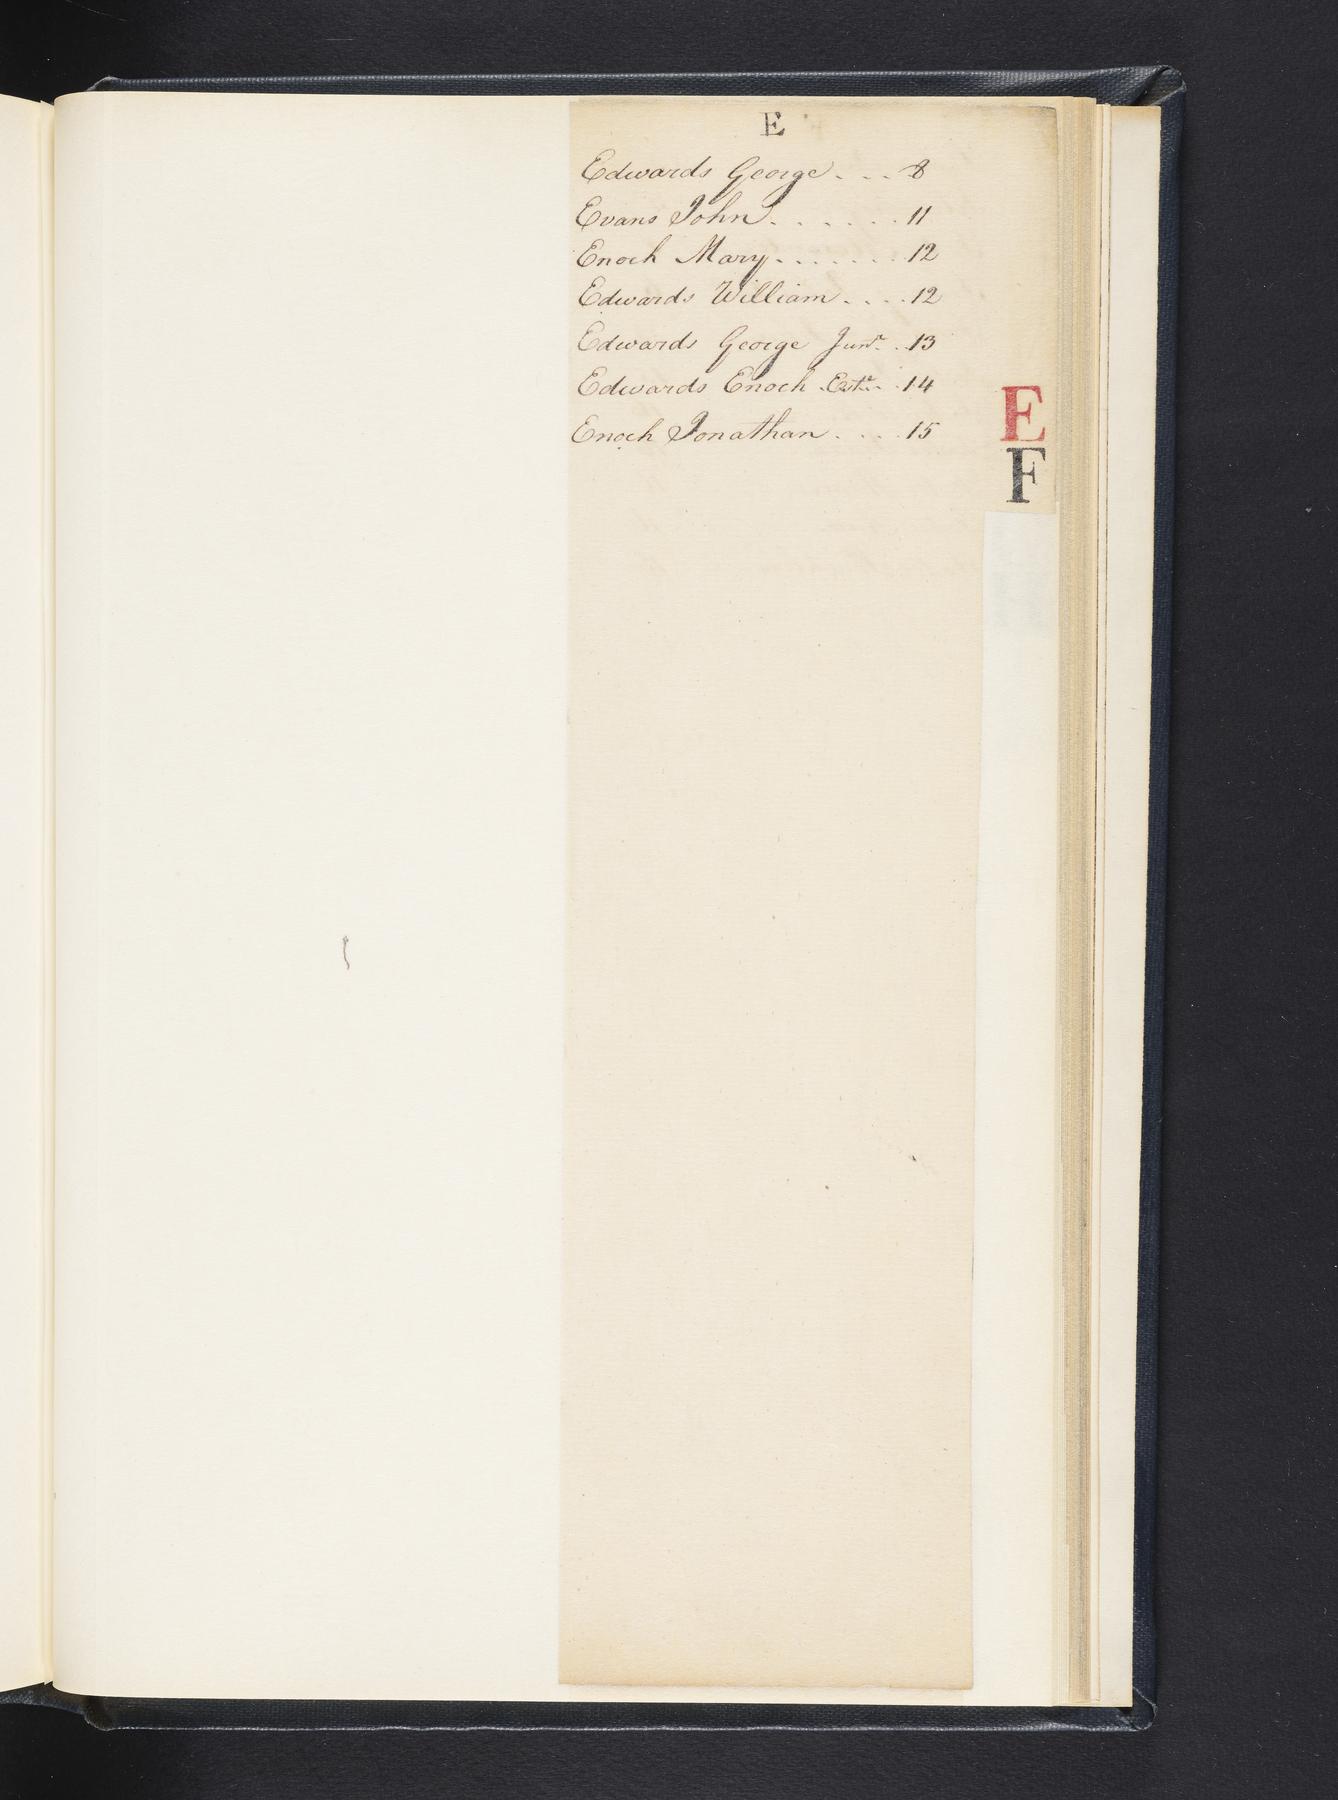 E
Edwards George . . . 8
Evans John . . . . . . 11
Enoch Mary . . . . . . . 12
Edwards William . . . . 12
Edwards George Junr. . . 13
Edwards Enoch . Estr. . . 14
Enoch Jonathan . . . . 15
E
F